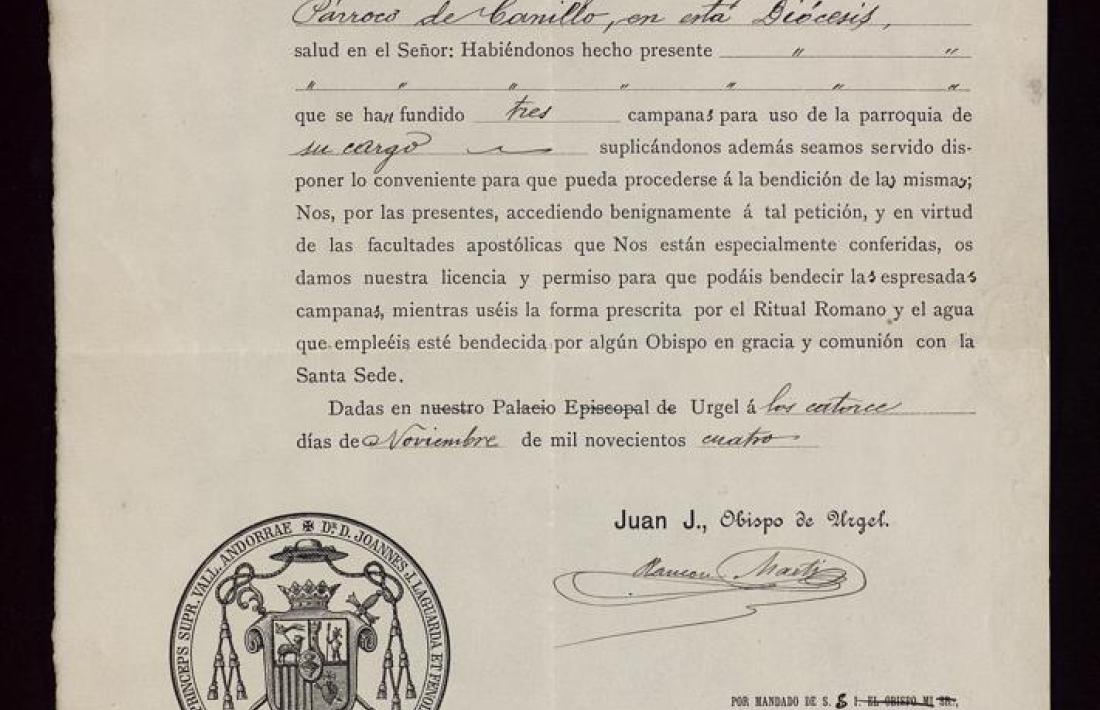 Párroco de Canillo, en esta Diócesis,
salud en el Señor: Habiéndonos hecho presente " "
" " " " " " "
que se han fundido tres campanas para uso de la parroquia de
su cargo suplicándonos además seamos servido dis-
poner lo conveniente para que pueda procederse á la bendición de las mismas;
Nos, por las presentes, accediendo benignamente á tal petición, y en virtud
de las facultades apostólicas que Nos están especialmente conferidas, os
damos nuestra licencia y permiso para que podáis bendecir las espresadas
campanas, mientras uséis la forma prescrita por el Ritual Romano y el agua
que empleéis esté bendecida por algún Obispo en gracia y comunión con la
Santa Sede.
Dadas en nuestro Palacio Episcopal de Urgel á los catorce
días de Noviembre de mil novecientos cuatro
Juan J., Obispo de Urgel.
Ramon Marti
PRINCEPS SUPR. VALL. ANDORRAE ✠ Dr. D. JOANNES J. LAGUARDA ET FENOL
POR MANDADO DE S. S I. EL OBISPO MI SR.,